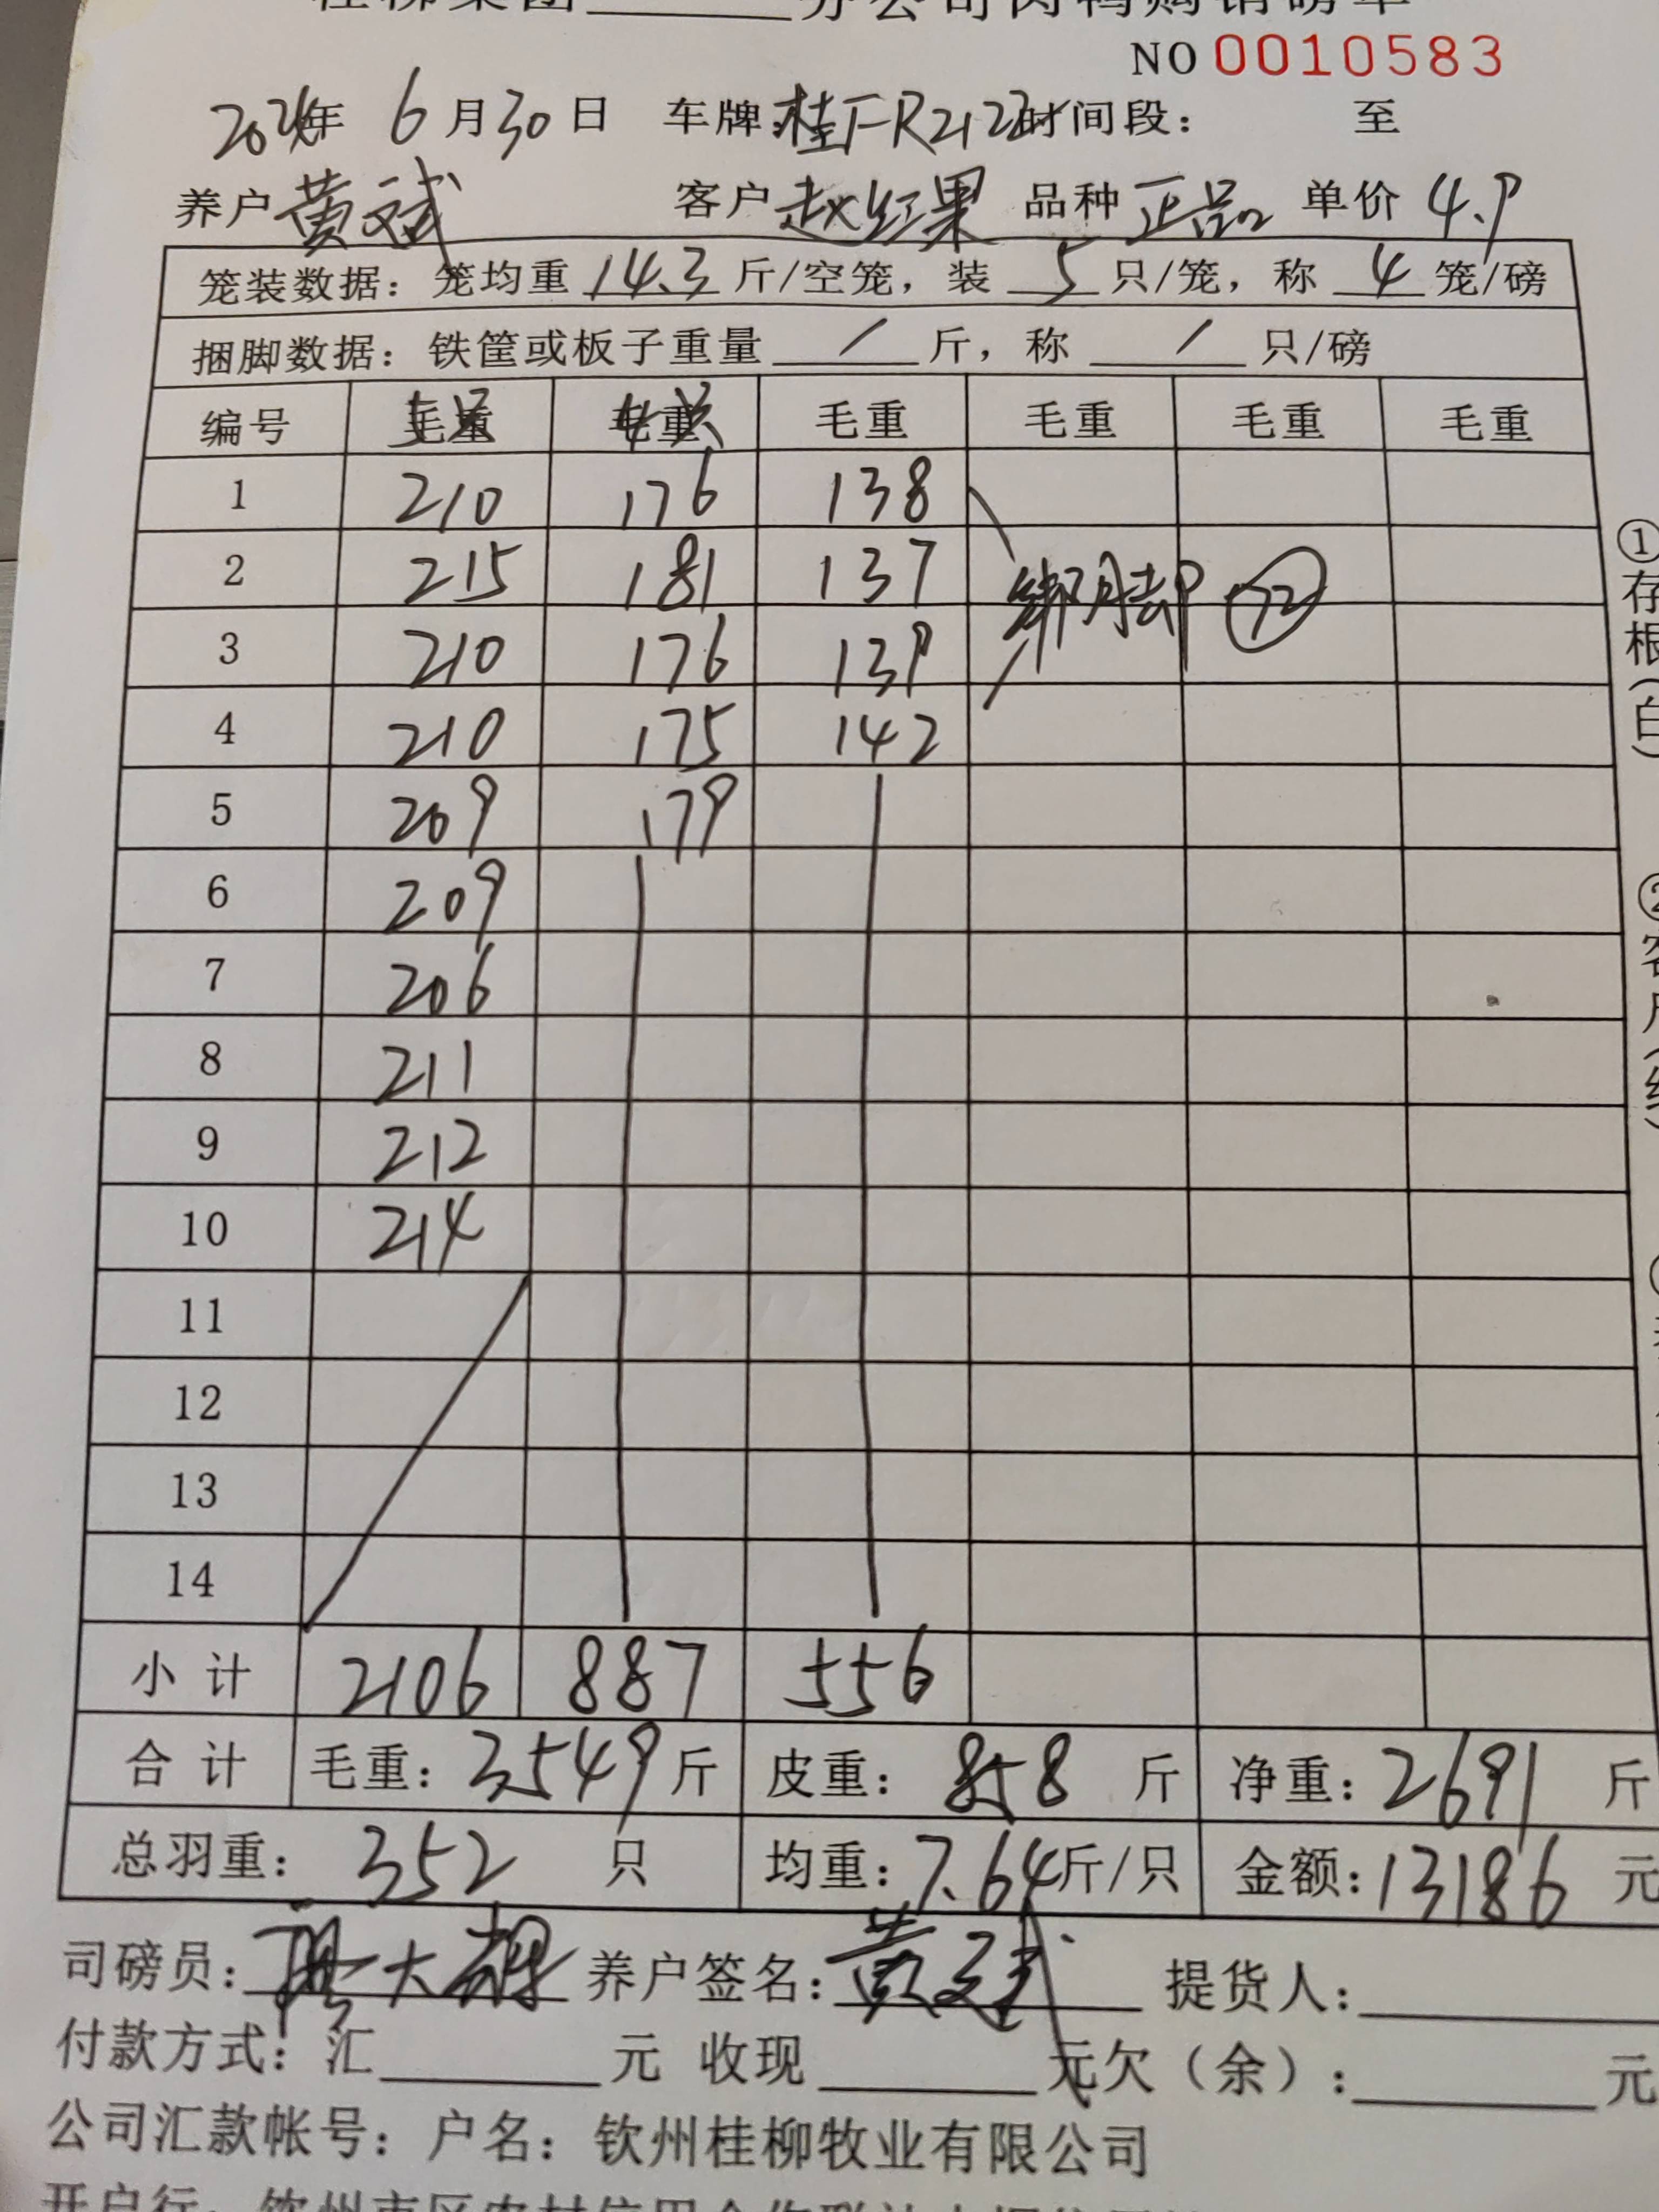 分公司肉鸭购销磅单
NO 0010583
2024年 6月30日 车牌:桂F-R2122 时间段: 至
养户 黄斌 客户 赵红果 品种 正品 单价 4.9
笼装数据:笼均重 14.3 斤/空笼,装 5 只/笼,称 4 笼/磅
捆脚数据:铁筐或板子重量 / 斤,称 / 只/磅
编号 毛重 5只 毛重 4只 毛重 毛重 毛重 毛重
1 210 176 138
2 215 181 137 绑脚 72
3 210 176 139
4 210 175 142
5 209 179
6 209
7 206
8 211
9 212
10 214
11
12
13
14
小计 2106 887 556
合计 毛重:3549斤 皮重:858 斤 净重:2691 斤
总羽重:352 只 均重:7.64斤/只 金额:13186 元
司磅员: 养户签名:黄 提货人:
付款方式:汇 元 收现 元欠(余): 元
公司汇款帐号:户名:钦州桂柳牧业有限公司
①存根(白)